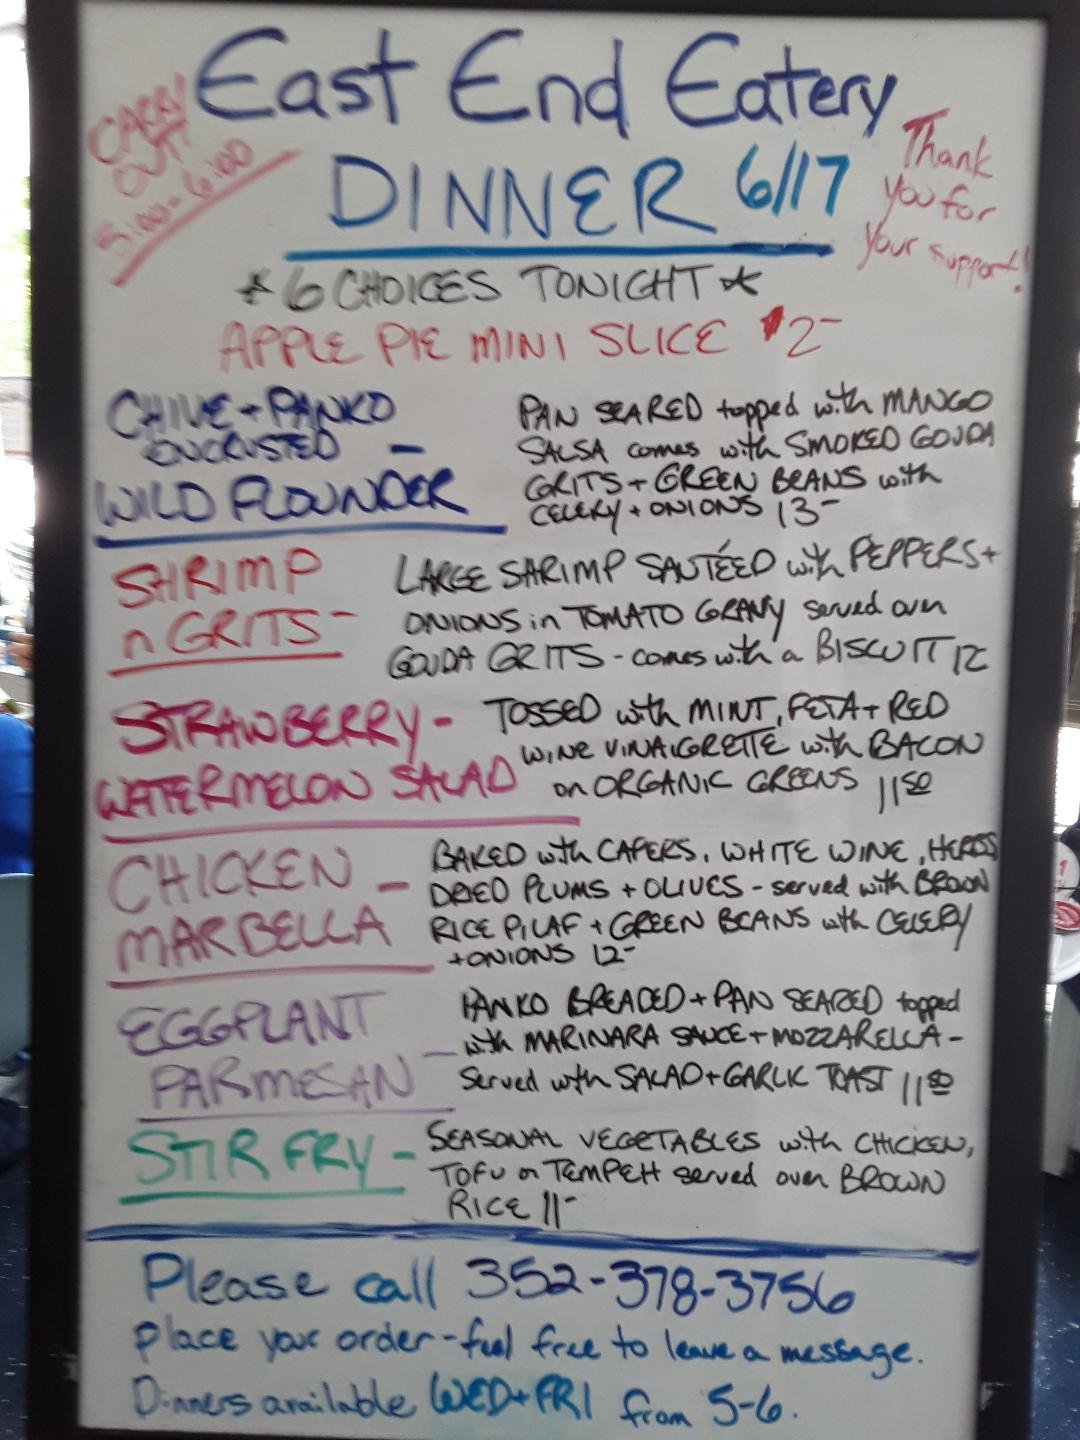 East End Eatery
CARRY
OUT!
5:00-6:00
DINNER 6/17
Thank
you for
your support!
*6 CHOICES TONIGHT*
APPLE PIE MINI SLICE $2-
CHIVE + PANKO
ENCRUSTED -
WILD FLOUNDER
PAN SEARED topped with MANGO
SALSA comes with SMOKED GOUDA
GRITS + GREEN BEANS with
CELERY + ONIONS 13-
SHRIMP
n GRITS -
LARGE SHRIMP SAUTÉED with PEPPERS +
ONIONS in TOMATO GRAVY served over
GOUDA GRITS - comes with a BISCUIT 12
STRAWBERRY -
WATERMELON SALAD
TOSSED with MINT, FETA + RED
WINE VINAIGRETTE with BACON
on ORGANIC GREENS 11 50
CHICKEN -
MARBELLA
BAKED with CAPERS, WHITE WINE, HERBS
DRIED PLUMS + OLIVES - served with BROWN
RICE PILAF + GREEN BEANS with CELERY
+ ONIONS 12-
EGGPLANT
PARMESAN -
PANKO BREADED + PAN SEARED topped
with MARINARA SAUCE + MOZZARELLA -
Served with SALAD + GARLIC TOAST 11 50
STIR FRY -
SEASONAL VEGETABLES with CHICKEN,
TOFU or TEMPEH served over BROWN
RICE 11-
Please call 352-378-3756
Place your order - feel free to leave a message.
Dinners available WED + FRI from 5-6.